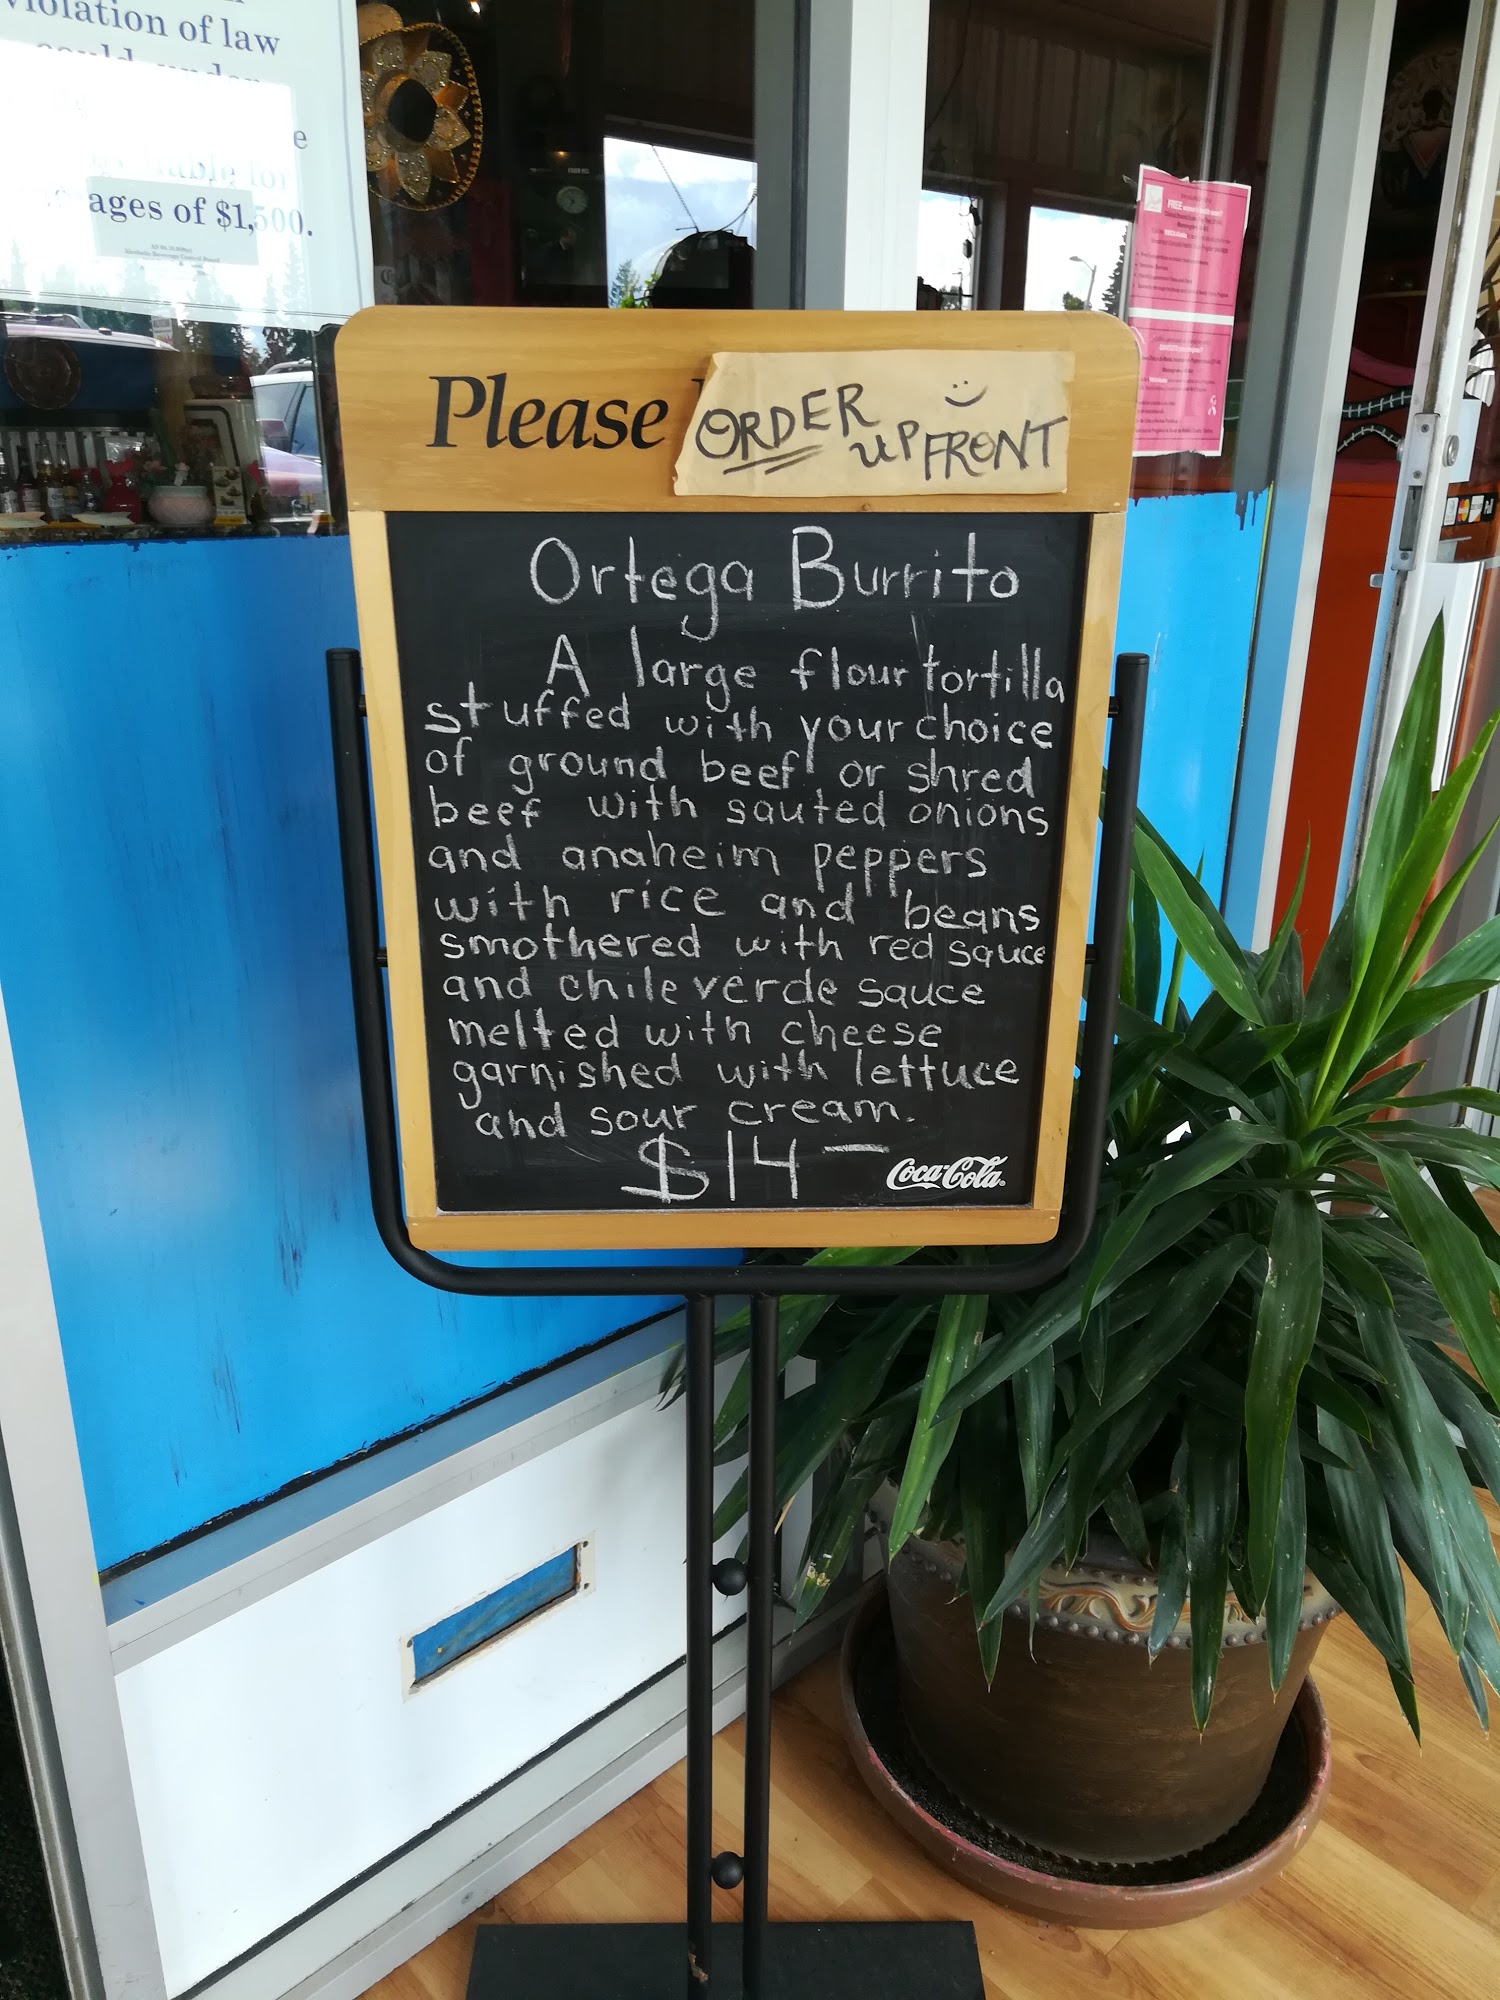 violation of law
ages of $1,500.
Please
ORDER
UPFRONT
Ortega Burrito
A large flour tortilla
stuffed with your choice
of ground beef or shred
beef with sauted onions
and anaheim peppers
with rice and beans
smothered with red sauce
and chile verde sauce
melted with cheese
garnished with lettuce
and sour cream.
$14 —
Coca-Cola
FREE